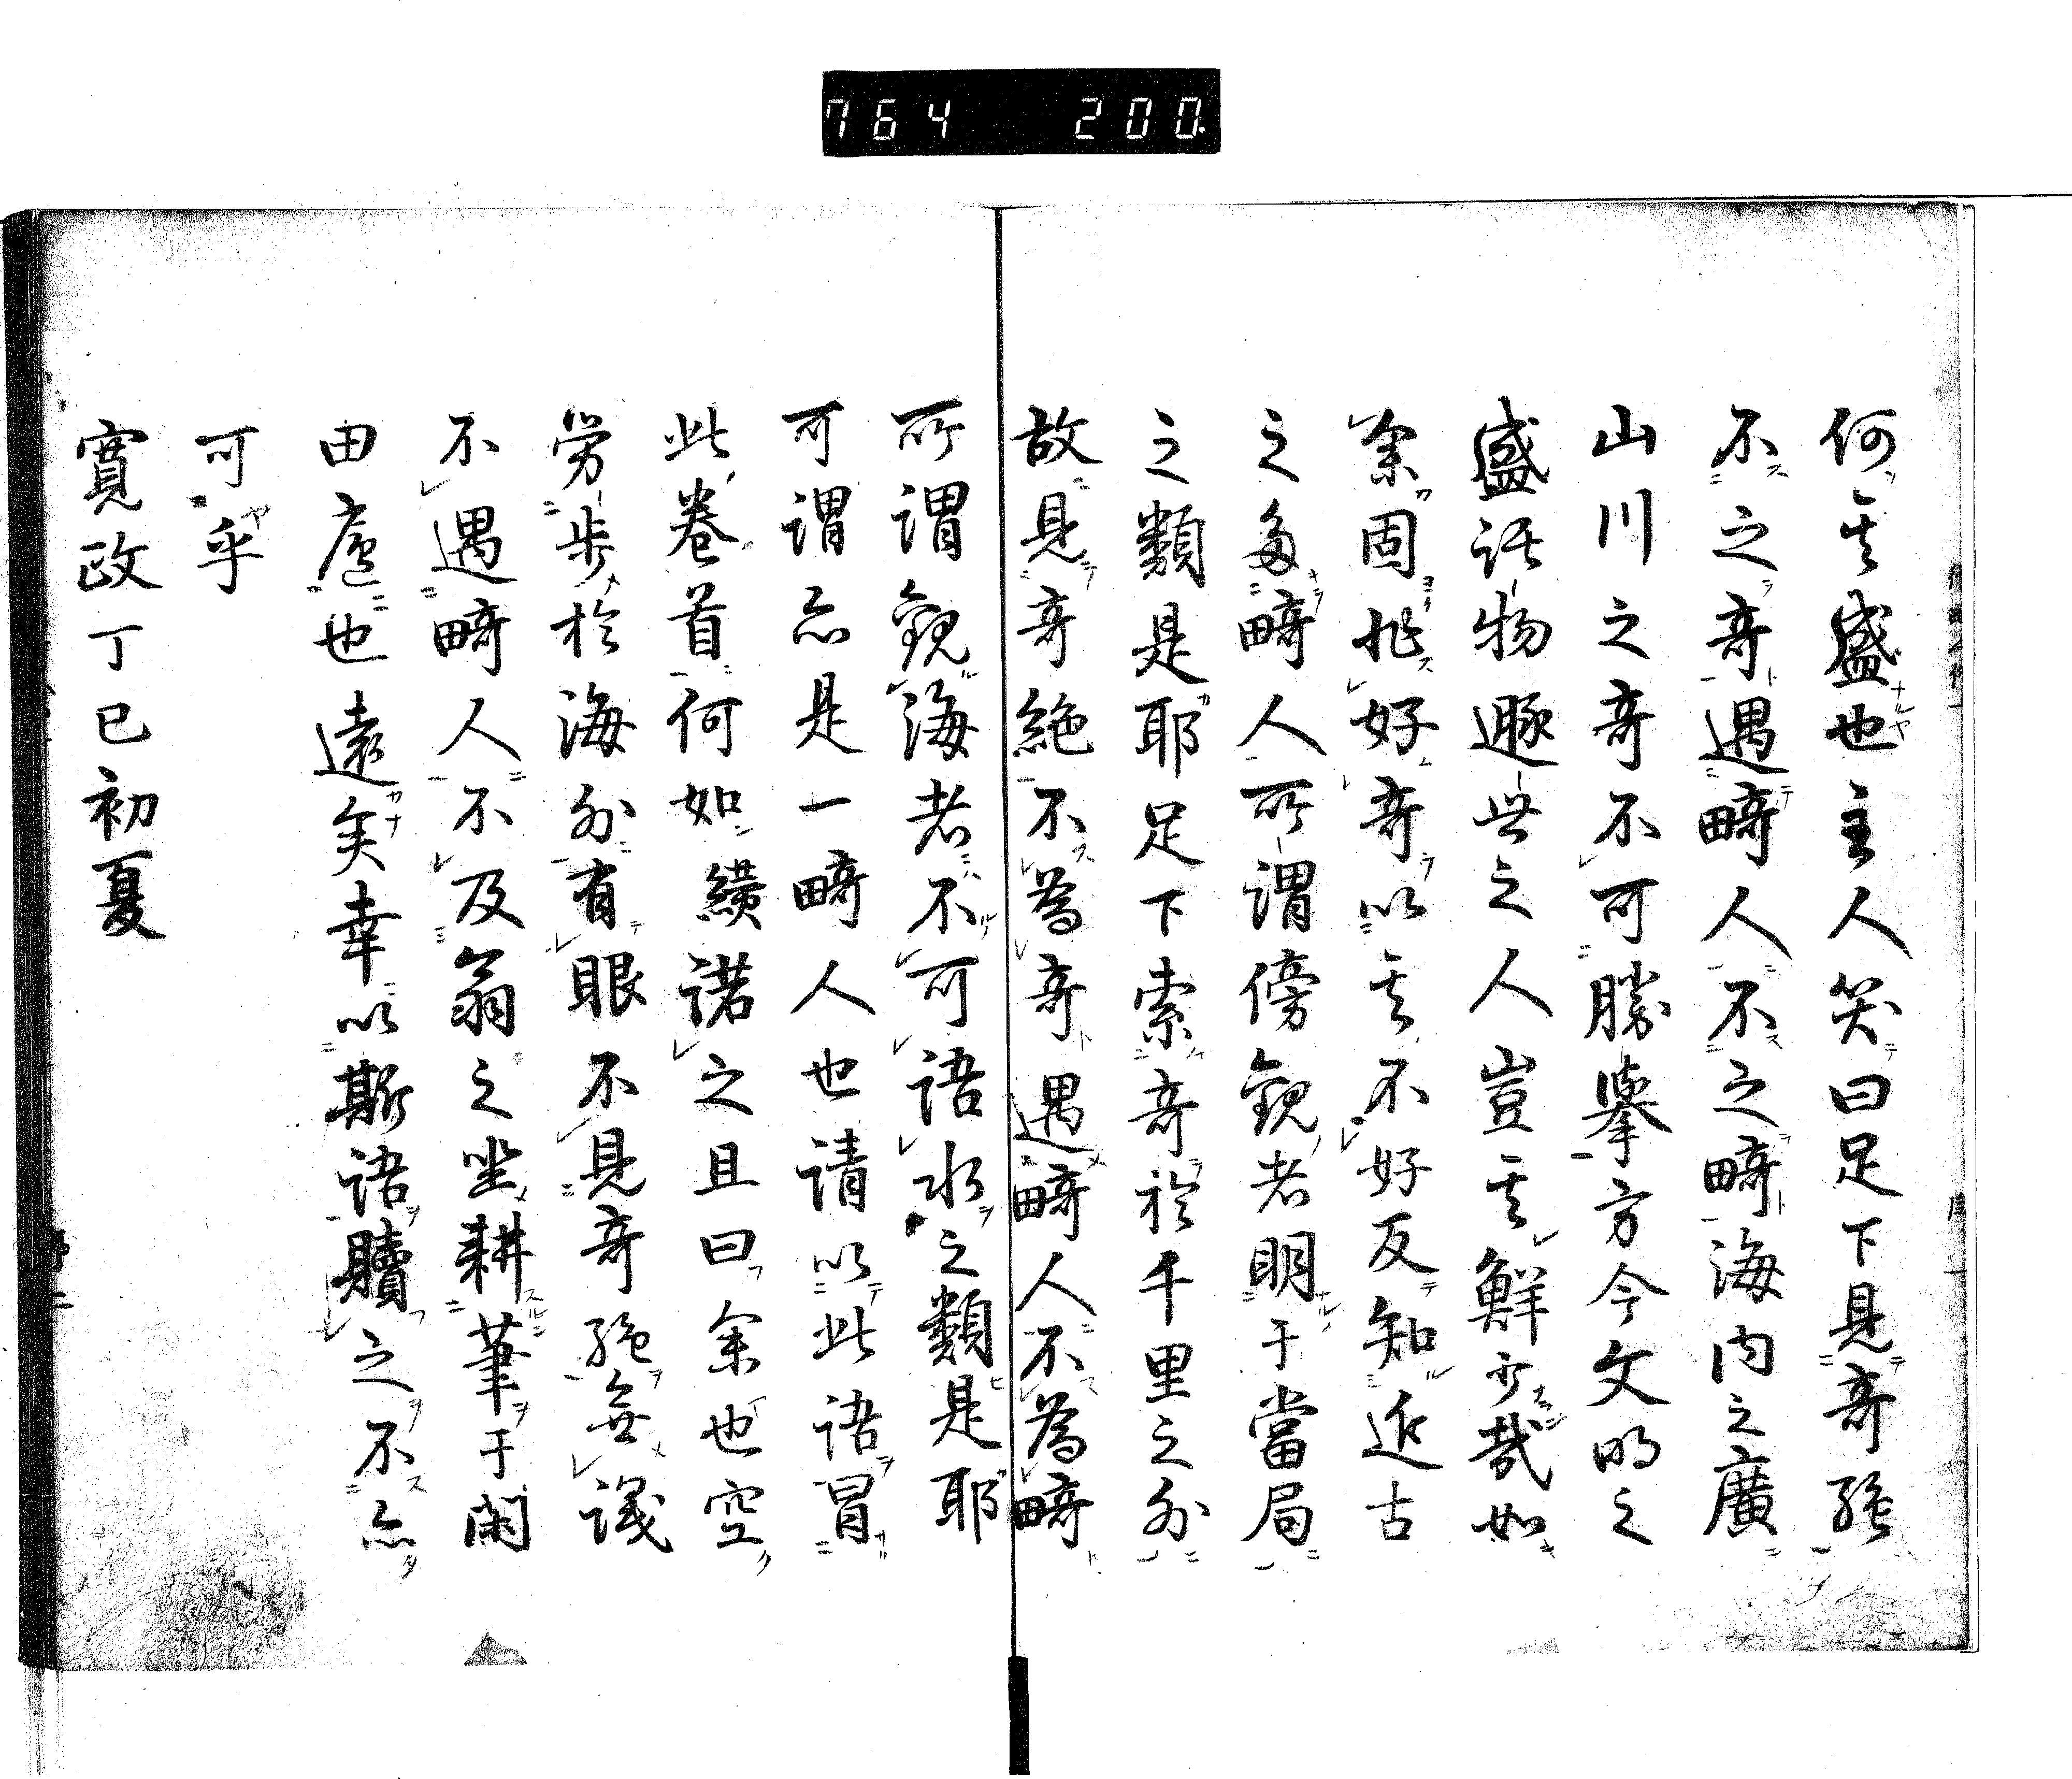 764 200
何其盛也主人笑曰足下見奇絶
不之奇遇畸人不之畸海内之廣
山川之奇不可勝擧方今文明之
盛活物遯世之人豈其鮮少哉如
余固非好奇以其不好反知近古
之多畸人所謂傍観者明于當局
之類是耶足下索奇於千里之外
故見奇絶不為奇遇畸人不為畸
所謂観海者不可語水之類是耶
可謂亦是一畸人也請以此語冒
此巻首何如績諾之且曰余也空
労歩於海外有眼不見奇絶無議
不遇畸人不及翁之坐耕筆于閑
田廬也遠矣幸以斯語贖之不亦
可乎
寛政丁巳初夏